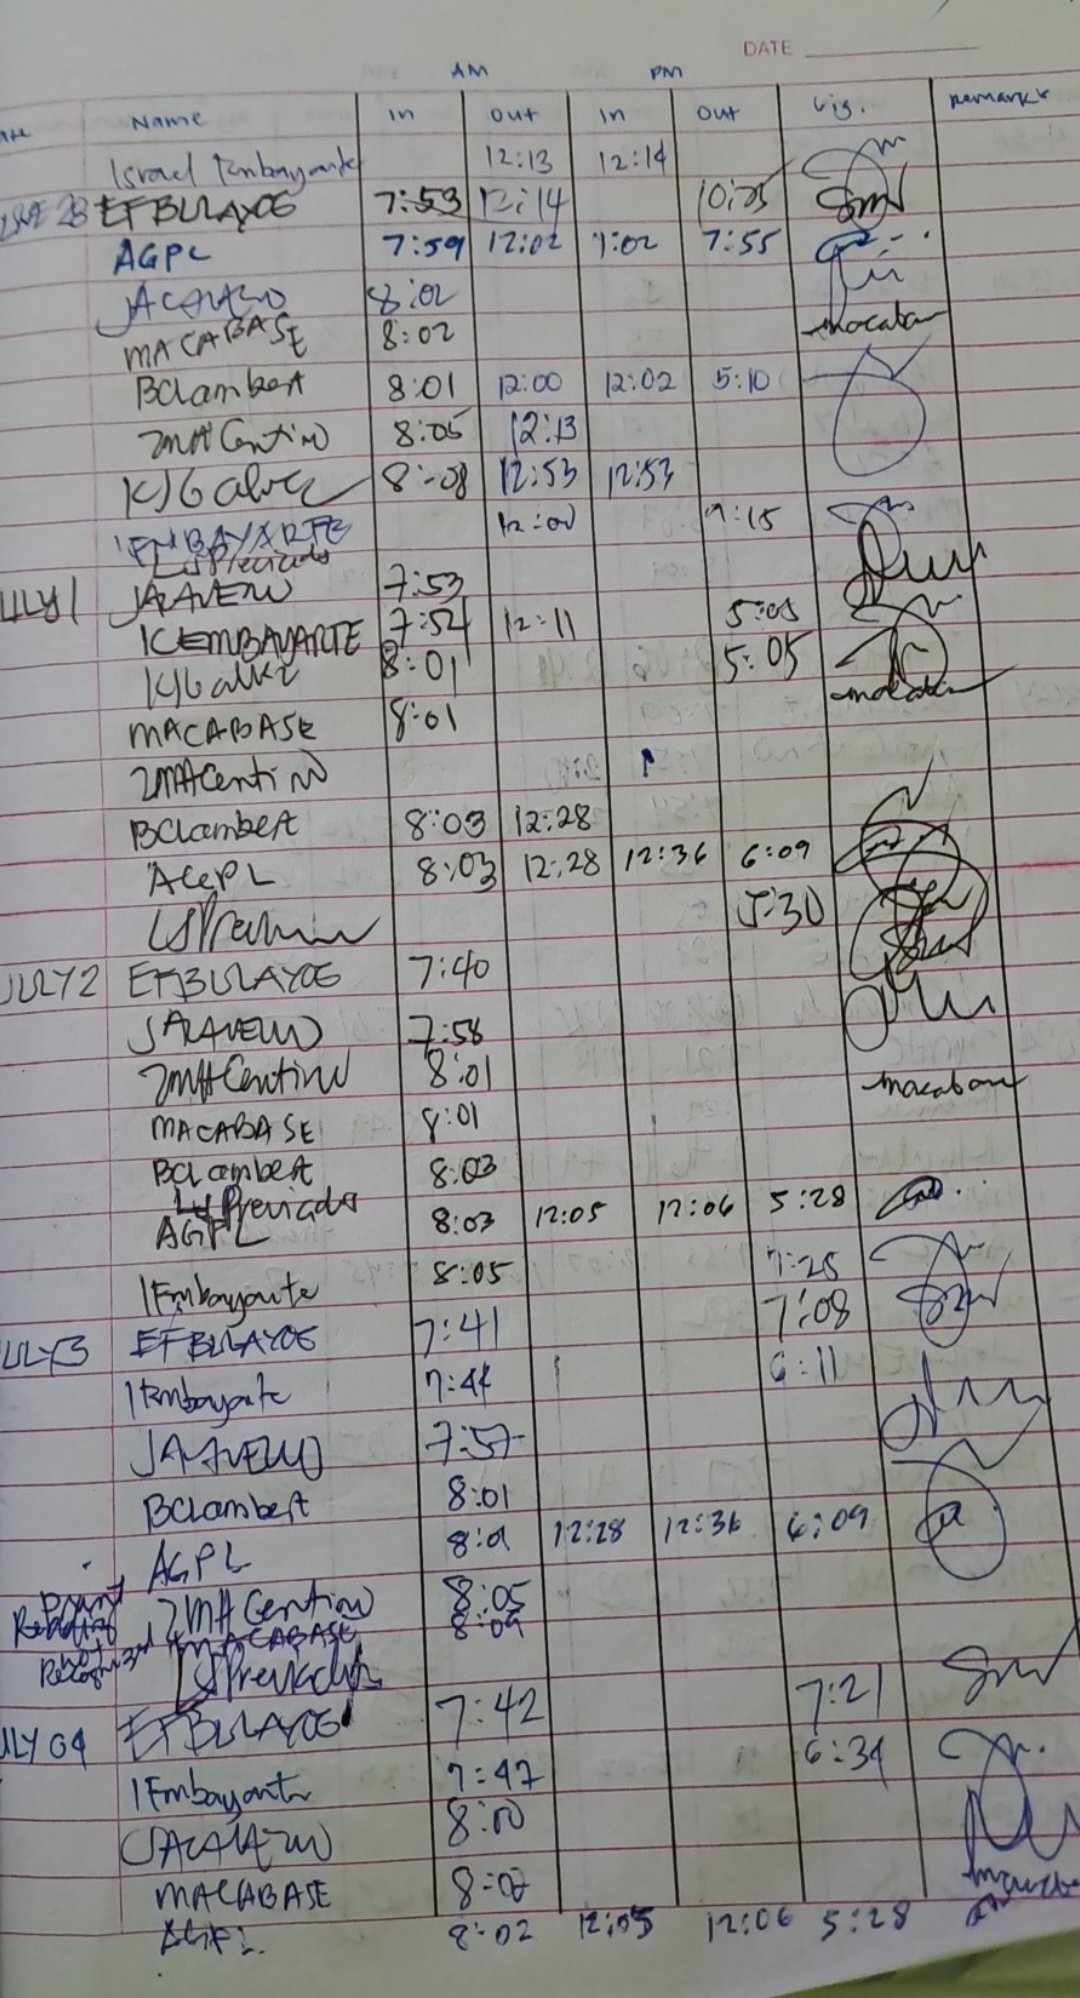 DATE
AM PM
Name In Out In Out Sig. Remarks
Israel Embayarte 12:13 12:14
EFBULAYOG 7:53 12:14 10:25
AGPL 7:59 12:02 1:02 7:55
8:02
MACABASE 8:02
BClambert 8:01 12:00 12:02 5:10
JMACentino 8:05 12:13
8:08 12:53 12:53
IEMBAYARTE 12:00 7:15
LSPreciado
JULY 1 7:53
ICEMBAYARTE 7:54 12:11 5:05
8:01 5:05
MACABASE 8:01
JMACentino
BClambert 8:03 12:28
AGPL 8:03 12:28 12:36 6:09
5:30
JULY 2 EFBULAYOG 7:40
7:58
JMACentino 8:01
MACABASE 8:01
BClambert 8:03
LSPreciado
AGPL 8:03 12:05 12:06 5:28
IEmbayarte 8:05 7:25
ULY3 EFBULAYOG 7:41 7:08
IEmbayarte 7:44 6:11
7:57
BClambert 8:01
AGPL 8:01 12:28 12:36 6:09
JMACentino 8:05
MACABASE 8:09
LSPreciado
ULY 04 EFBULAYOG 7:42 7:21
IEmbayarte 7:47 6:34
8:00
MACABASE 8:02
AGPL 8:02 12:05 12:06 5:28